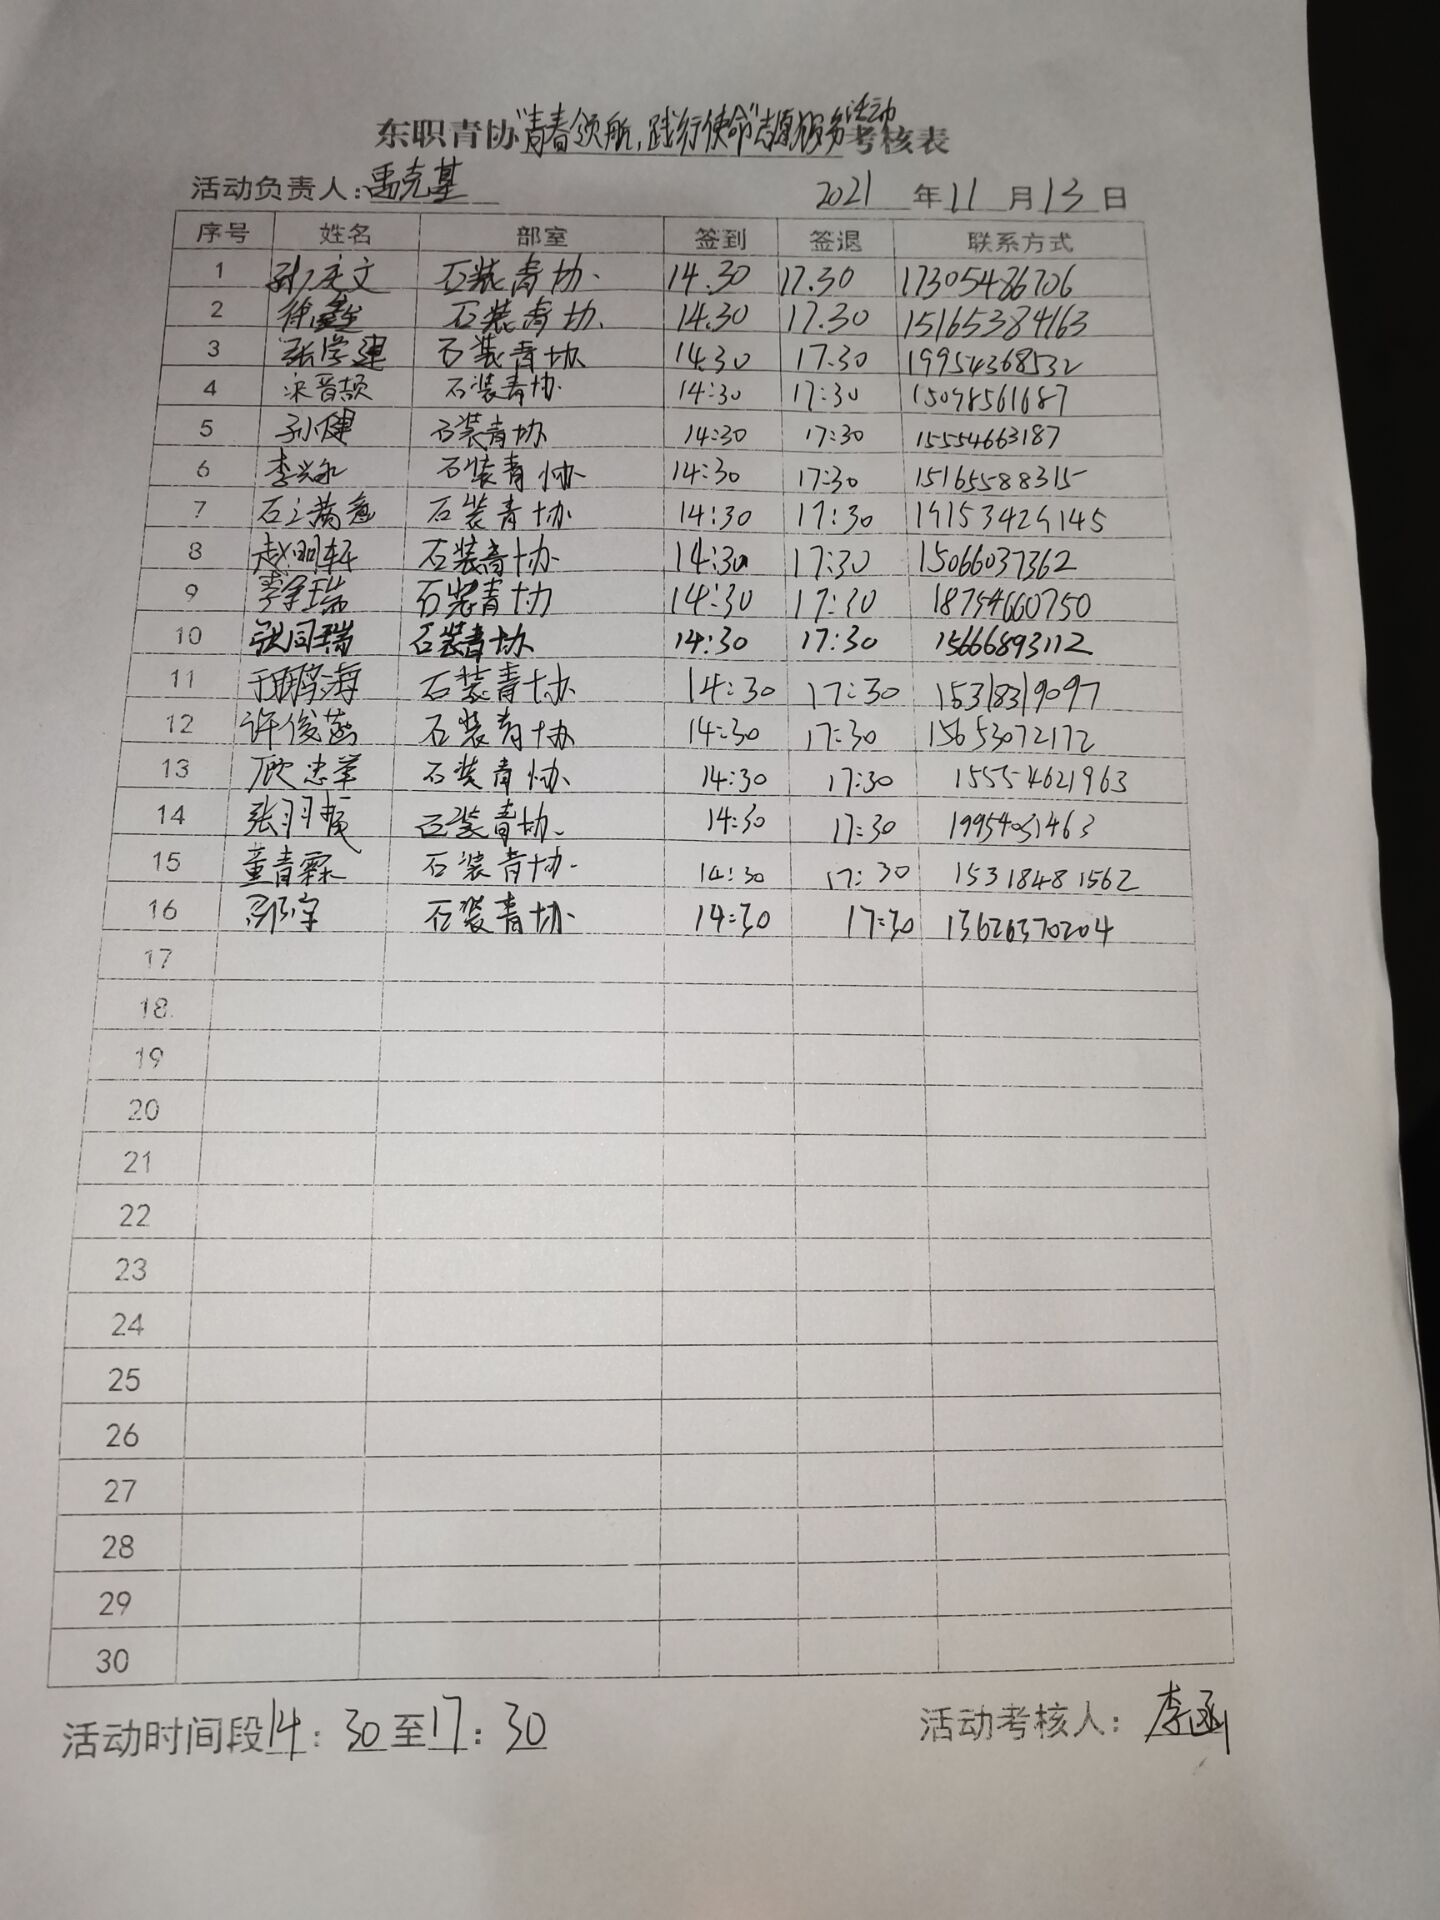 东职青协"青春领航,践行使命"志愿服务活动考核表
活动负责人:禹克基 2021 年 11 月 13 日
序号 姓名 部室 签到 签退 联系方式
1 孙庆文 石装青协. 14.30 17.30 17305486706
2 石装青协. 14.30 17.30 15165384163
3 张学建 石装青协 14:30 17.30 19954368532
4 石装青协 14:30 17:30 15098561687
5 孙健 石装青协 14:30 17:30 15554663187
6 李兴永 石装青协 14:30 17:30 15165588315
7 石立满意 石装青协 14:30 17:30 19153429145
8 赵明轩 石装青协 14:30 17:30 15066037362
9 李金瑞 石装青协 14:30 17:30 18754660750
10 张同瑞 石装青协 14:30 17:30 15666893112
11 石装青协 14:30 17:30 15318319097
12 石装青协 14:30 17:30 15653072172
13 石装青协 14:30 17:30 15554621963
14 张羽 石装青协. 14:30 17:30 19954031463
15 董青霖 石装青协. 14:30 17:30 15318481562
16 石装青协. 14:30 17:30 13626370204
17
18
19
20
21
22
23
24
25
26
27
28
29
30
活动时间段14:30至17:30 活动考核人:李函